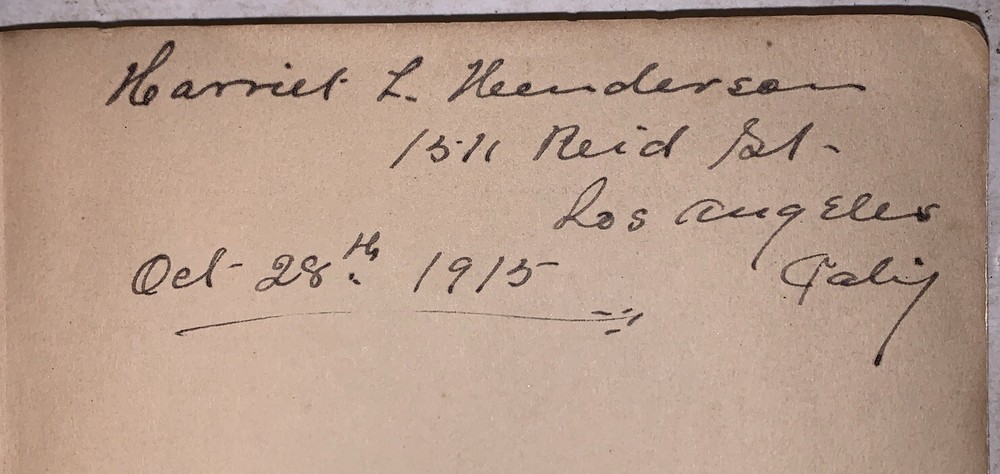 Harriet L. Henderson
1511 Reid St.
Los Angeles
Oct 28th. 1915 Calif